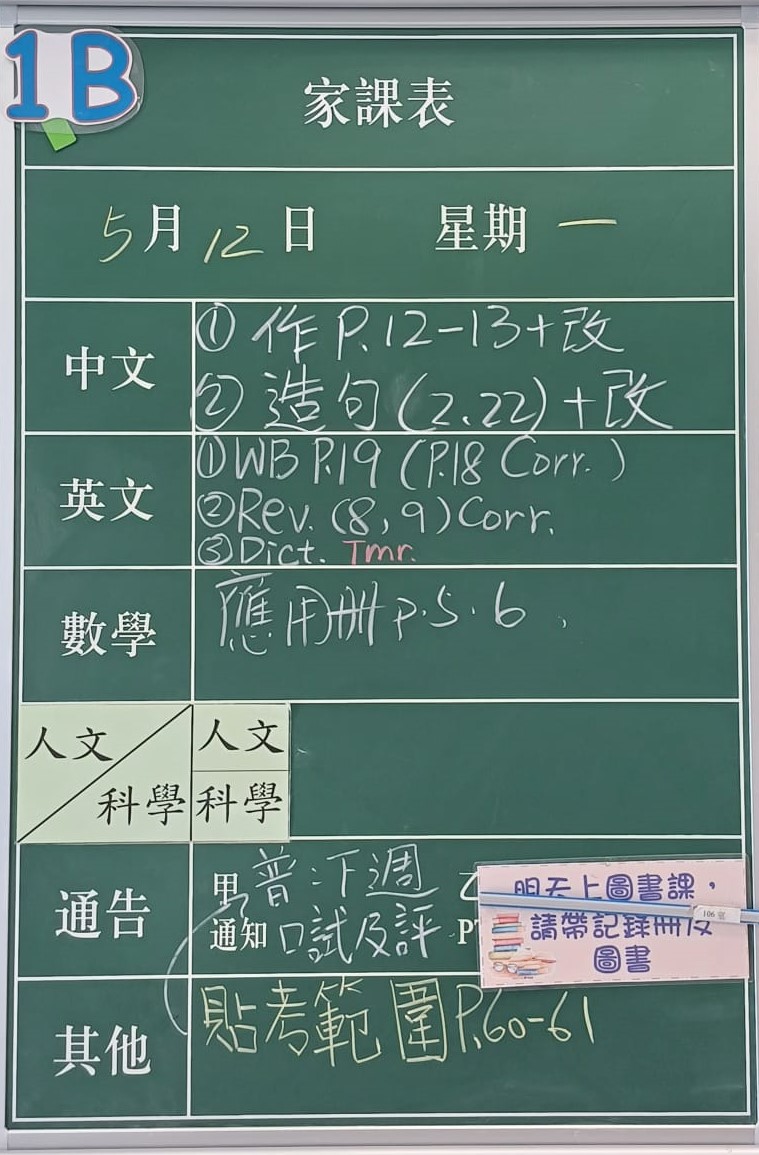 1B
家課表
5月12日 星期一
中文
① 作 P.12-13+改
② 造句(2.22)+改
英文
①WB P.19 (P.18 Corr.)
②Rev. (8,9)Corr.
③Dict. Tmr.
數學
應用冊 P.5.6
人文
科學
人文
科學
通告
普:下週
通知 口試及評
明天上圖書課，
請帶記錄冊及
圖書
106室
其他
貼考範圍P.60-61